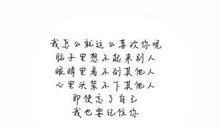 我怎么就这么喜欢你呢
脑子里想不起来别人
眼睛里看不到其他人
心里头装不下其他人
即使忘了自己
我也要记住你